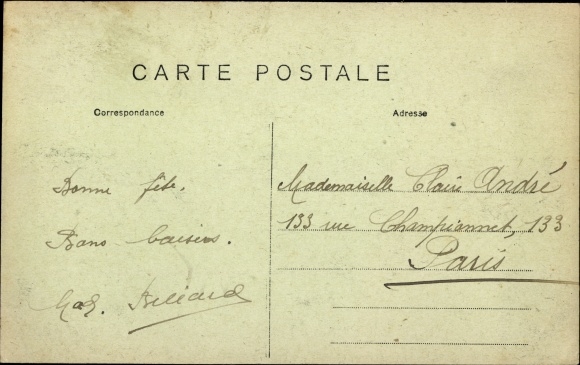 CARTE POSTALE
Correspondance
Adresse
Bonne fête.
Bons baisers.
Mademoiselle Claire André
133 rue Championnet, 133
Paris